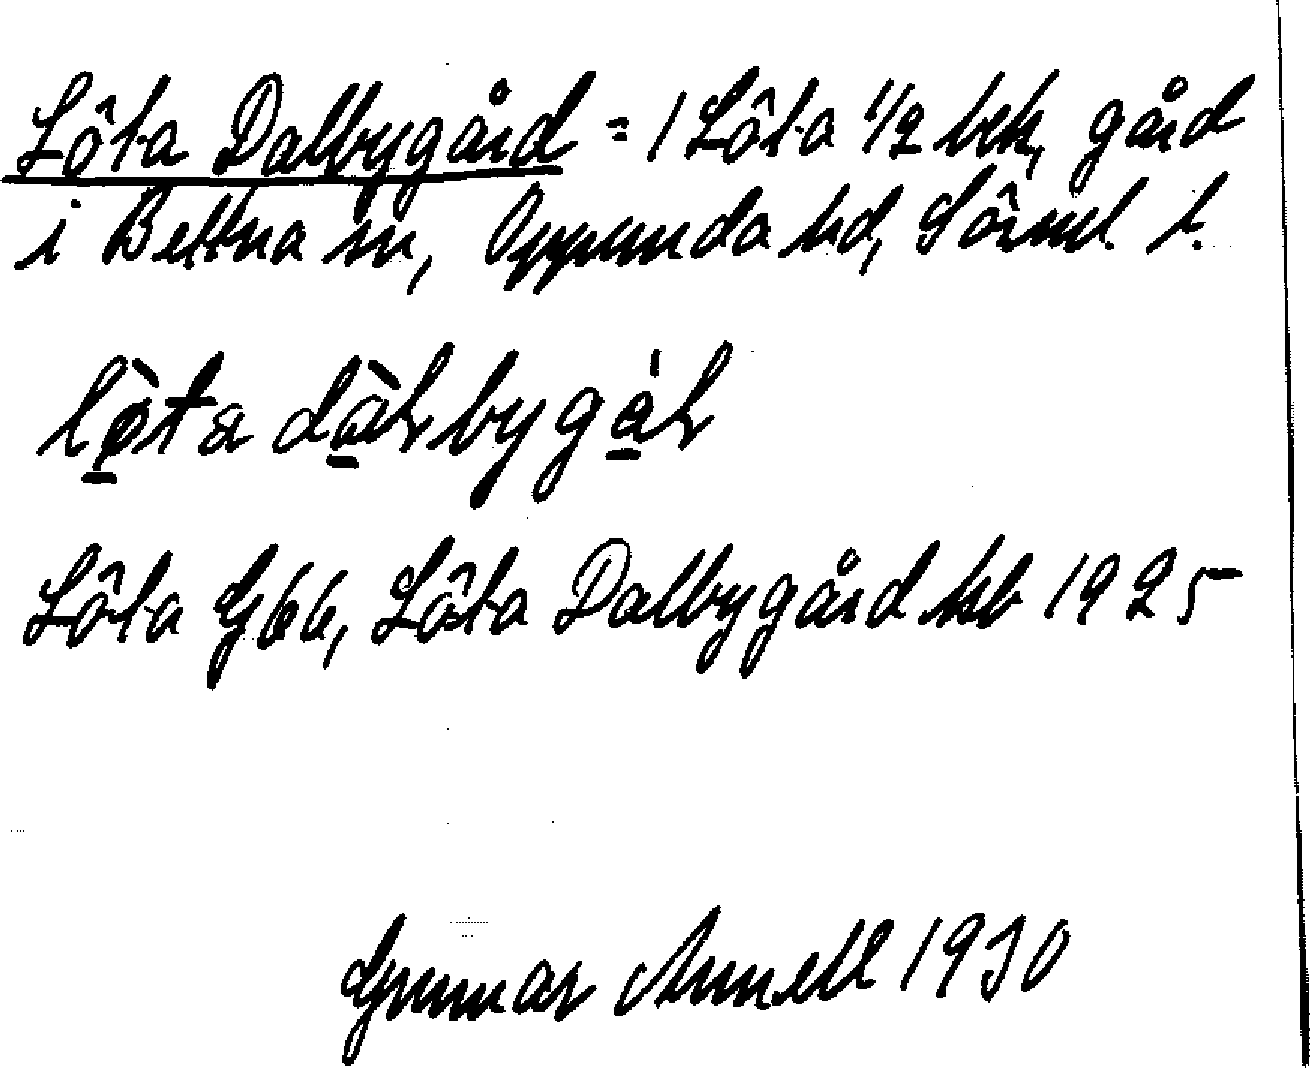 Löta Dalbygård = 1 Löta 1/2 bek, gård
i Bettna sn, Oppunda hd, Sörml l.
lö̀ta dàƚbygáƚ
Löta G66, Löta Dalbygård kb 1925
Gunnar Annell 1930